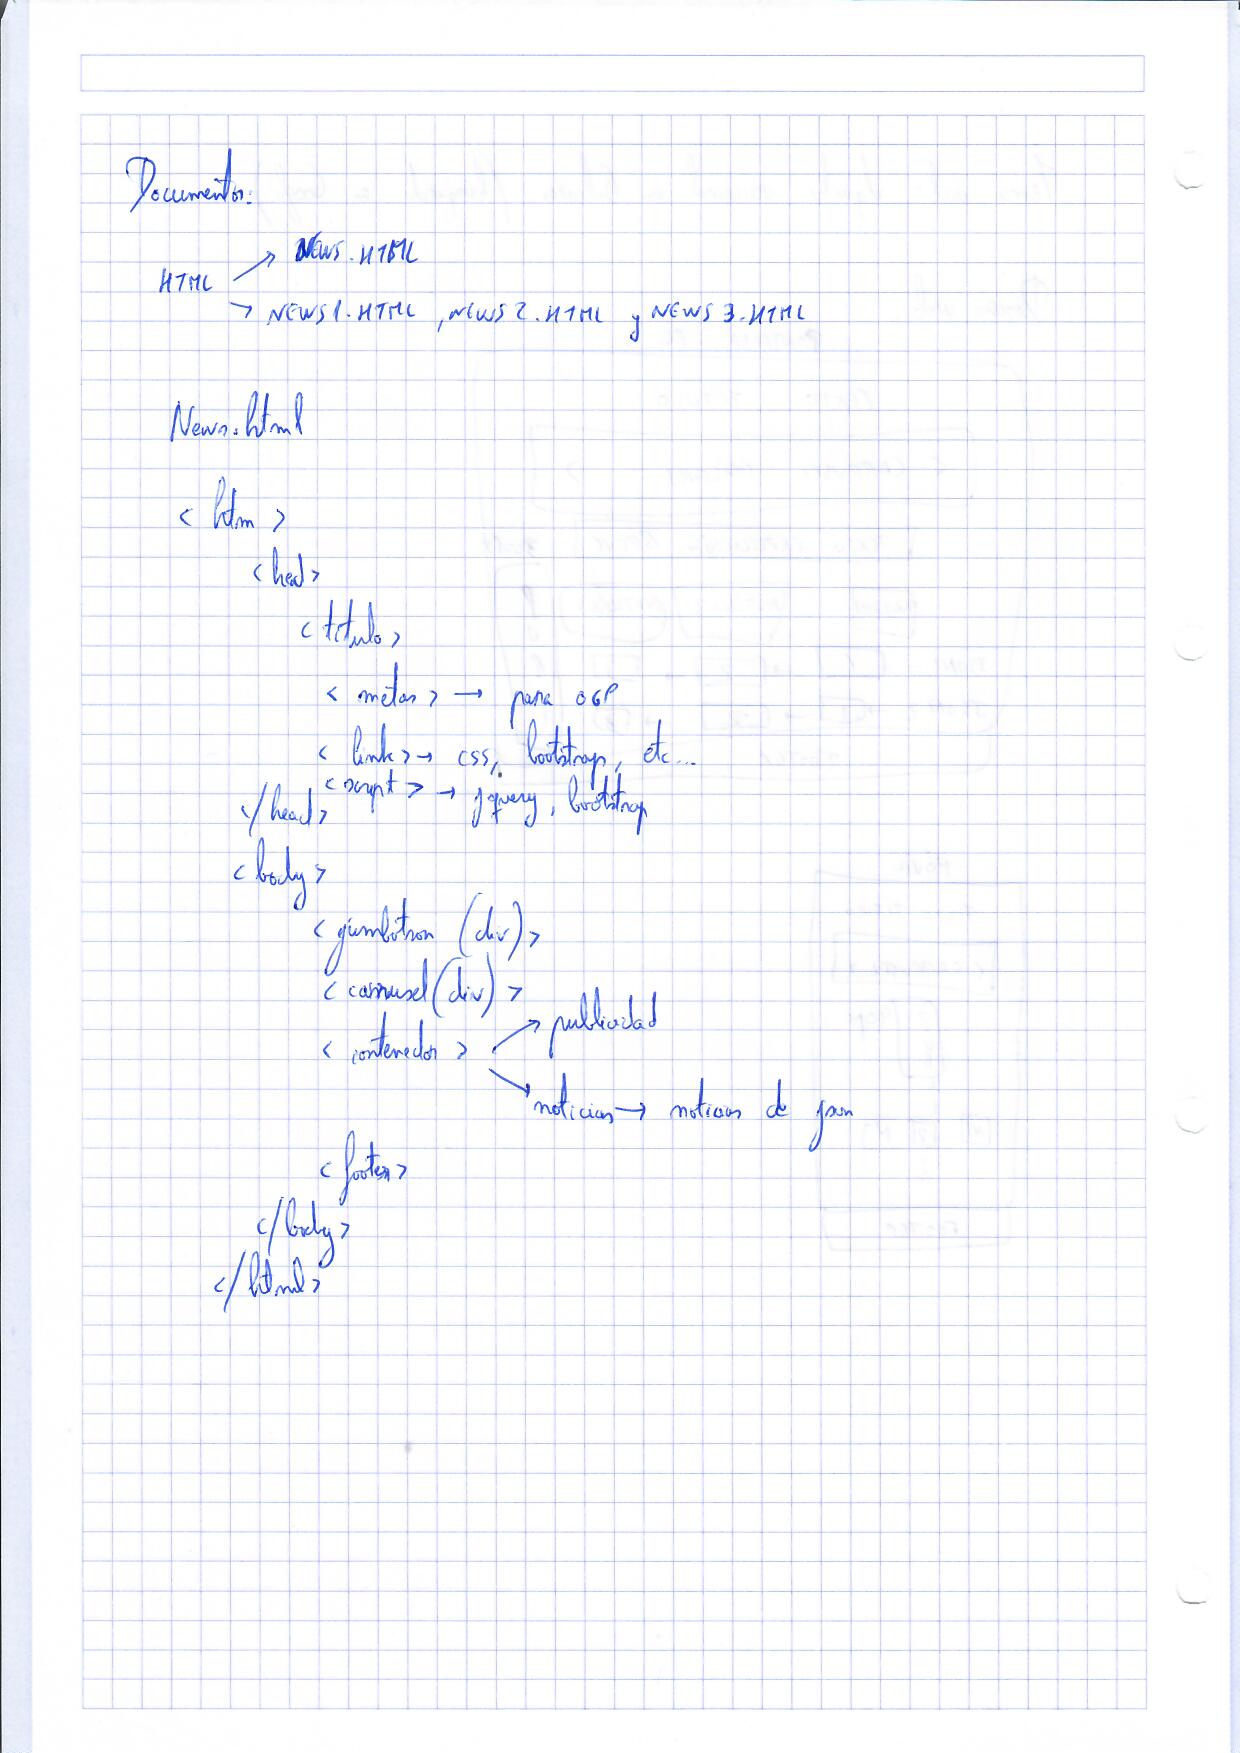 Documentos:
NEWS.HTML
HTML
NEWS1.HTML, NEWS2.HTML y NEWS3.HTML
News.html
<htm>
<head>
<titulo>
<metas> → para OGP
<link> → css, bootstrap, etc...
<script> → jquery, bootstrap
</head>
<body>
<jumbotron (div)>
<carrusel (div)>
publicidad
<contenedor>
noticias → noticias de json
<footer>
</body>
</html>